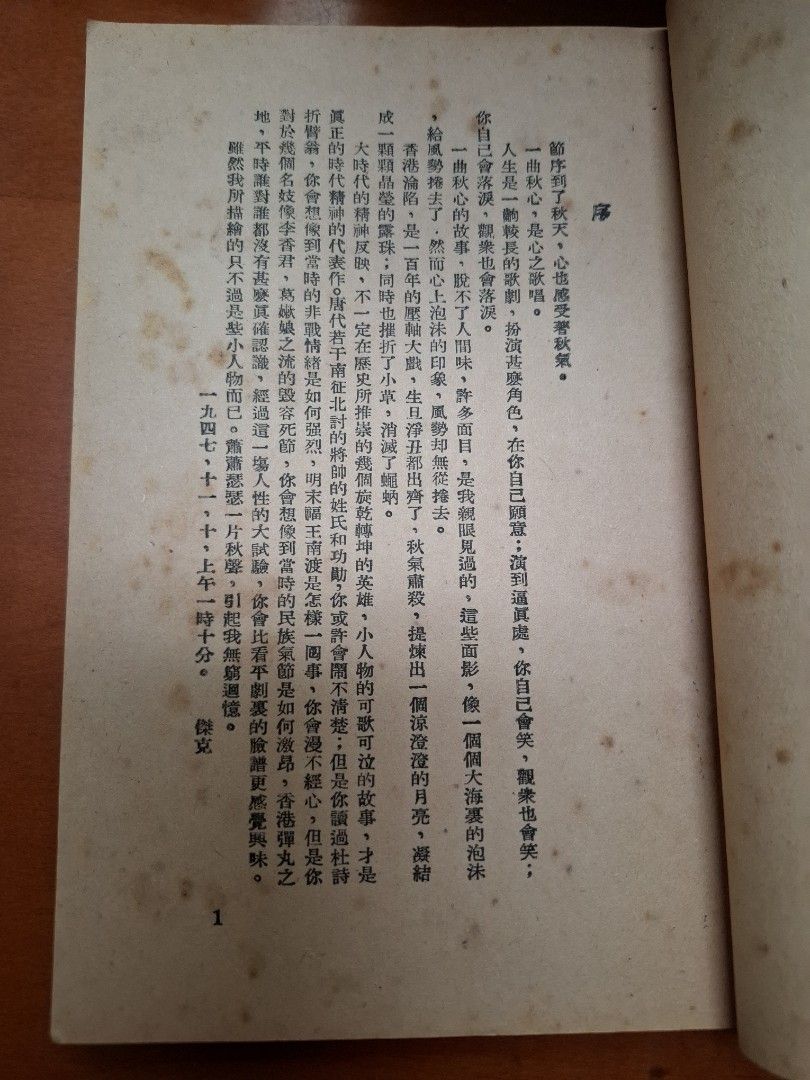 序
節序到了秋天，心也感受著秋氣。
一曲秋心，是心之歌唱。
人生是一齣較長的歌劇，扮演甚麼角色，在你自己願意；演到逼眞處，你自己會笑，觀衆也會笑；
你自己會落淚，觀衆也會落淚。
一曲秋心的故事，脫不了人間味，許多面目，是我親眼見過的，這些面影，像一個個大海裏的泡沫
，給風勢捲去了．然而心上泡沫的印象，風勢却無從捲去。
香港淪陷，是一百年的壓軸大戲，生旦淨丑都出齊了，秋氣肅殺，提煉出一個涼澄澄的月亮，凝結
成一顆顆晶瑩的露珠；同時也摧折了小草，消滅了蠅蚋。
大時代的精神反映，不一定在歷史所推崇的幾個旋乾轉坤的英雄，小人物的可歌可泣的故事，才是
眞正的時代精神的代表作。唐代若干南征北討的將帥的姓氏和功勛，你或許會鬧不清楚；但是你讀過杜詩
折臂翁，你會想像到當時的非戰情緒是如何强烈，明末福王南渡是怎樣一囘事，你會漫不經心，但是你
對於幾個名妓像李香君，葛嫩娘之流的毀容死節，你會想像到當時的民族氣節是如何激昂，香港彈丸之
地，平時誰對誰都沒有甚麼眞確認識，經過這一塲人性的大試驗，你會比看平劇裏的臉譜更感覺興味。
雖然我所描繪的只不過是些小人物而已。蕭蕭瑟瑟一片秋聲，引起我無窮迴憶。
一九四七，十一，十，上午一時十分。 傑克
1